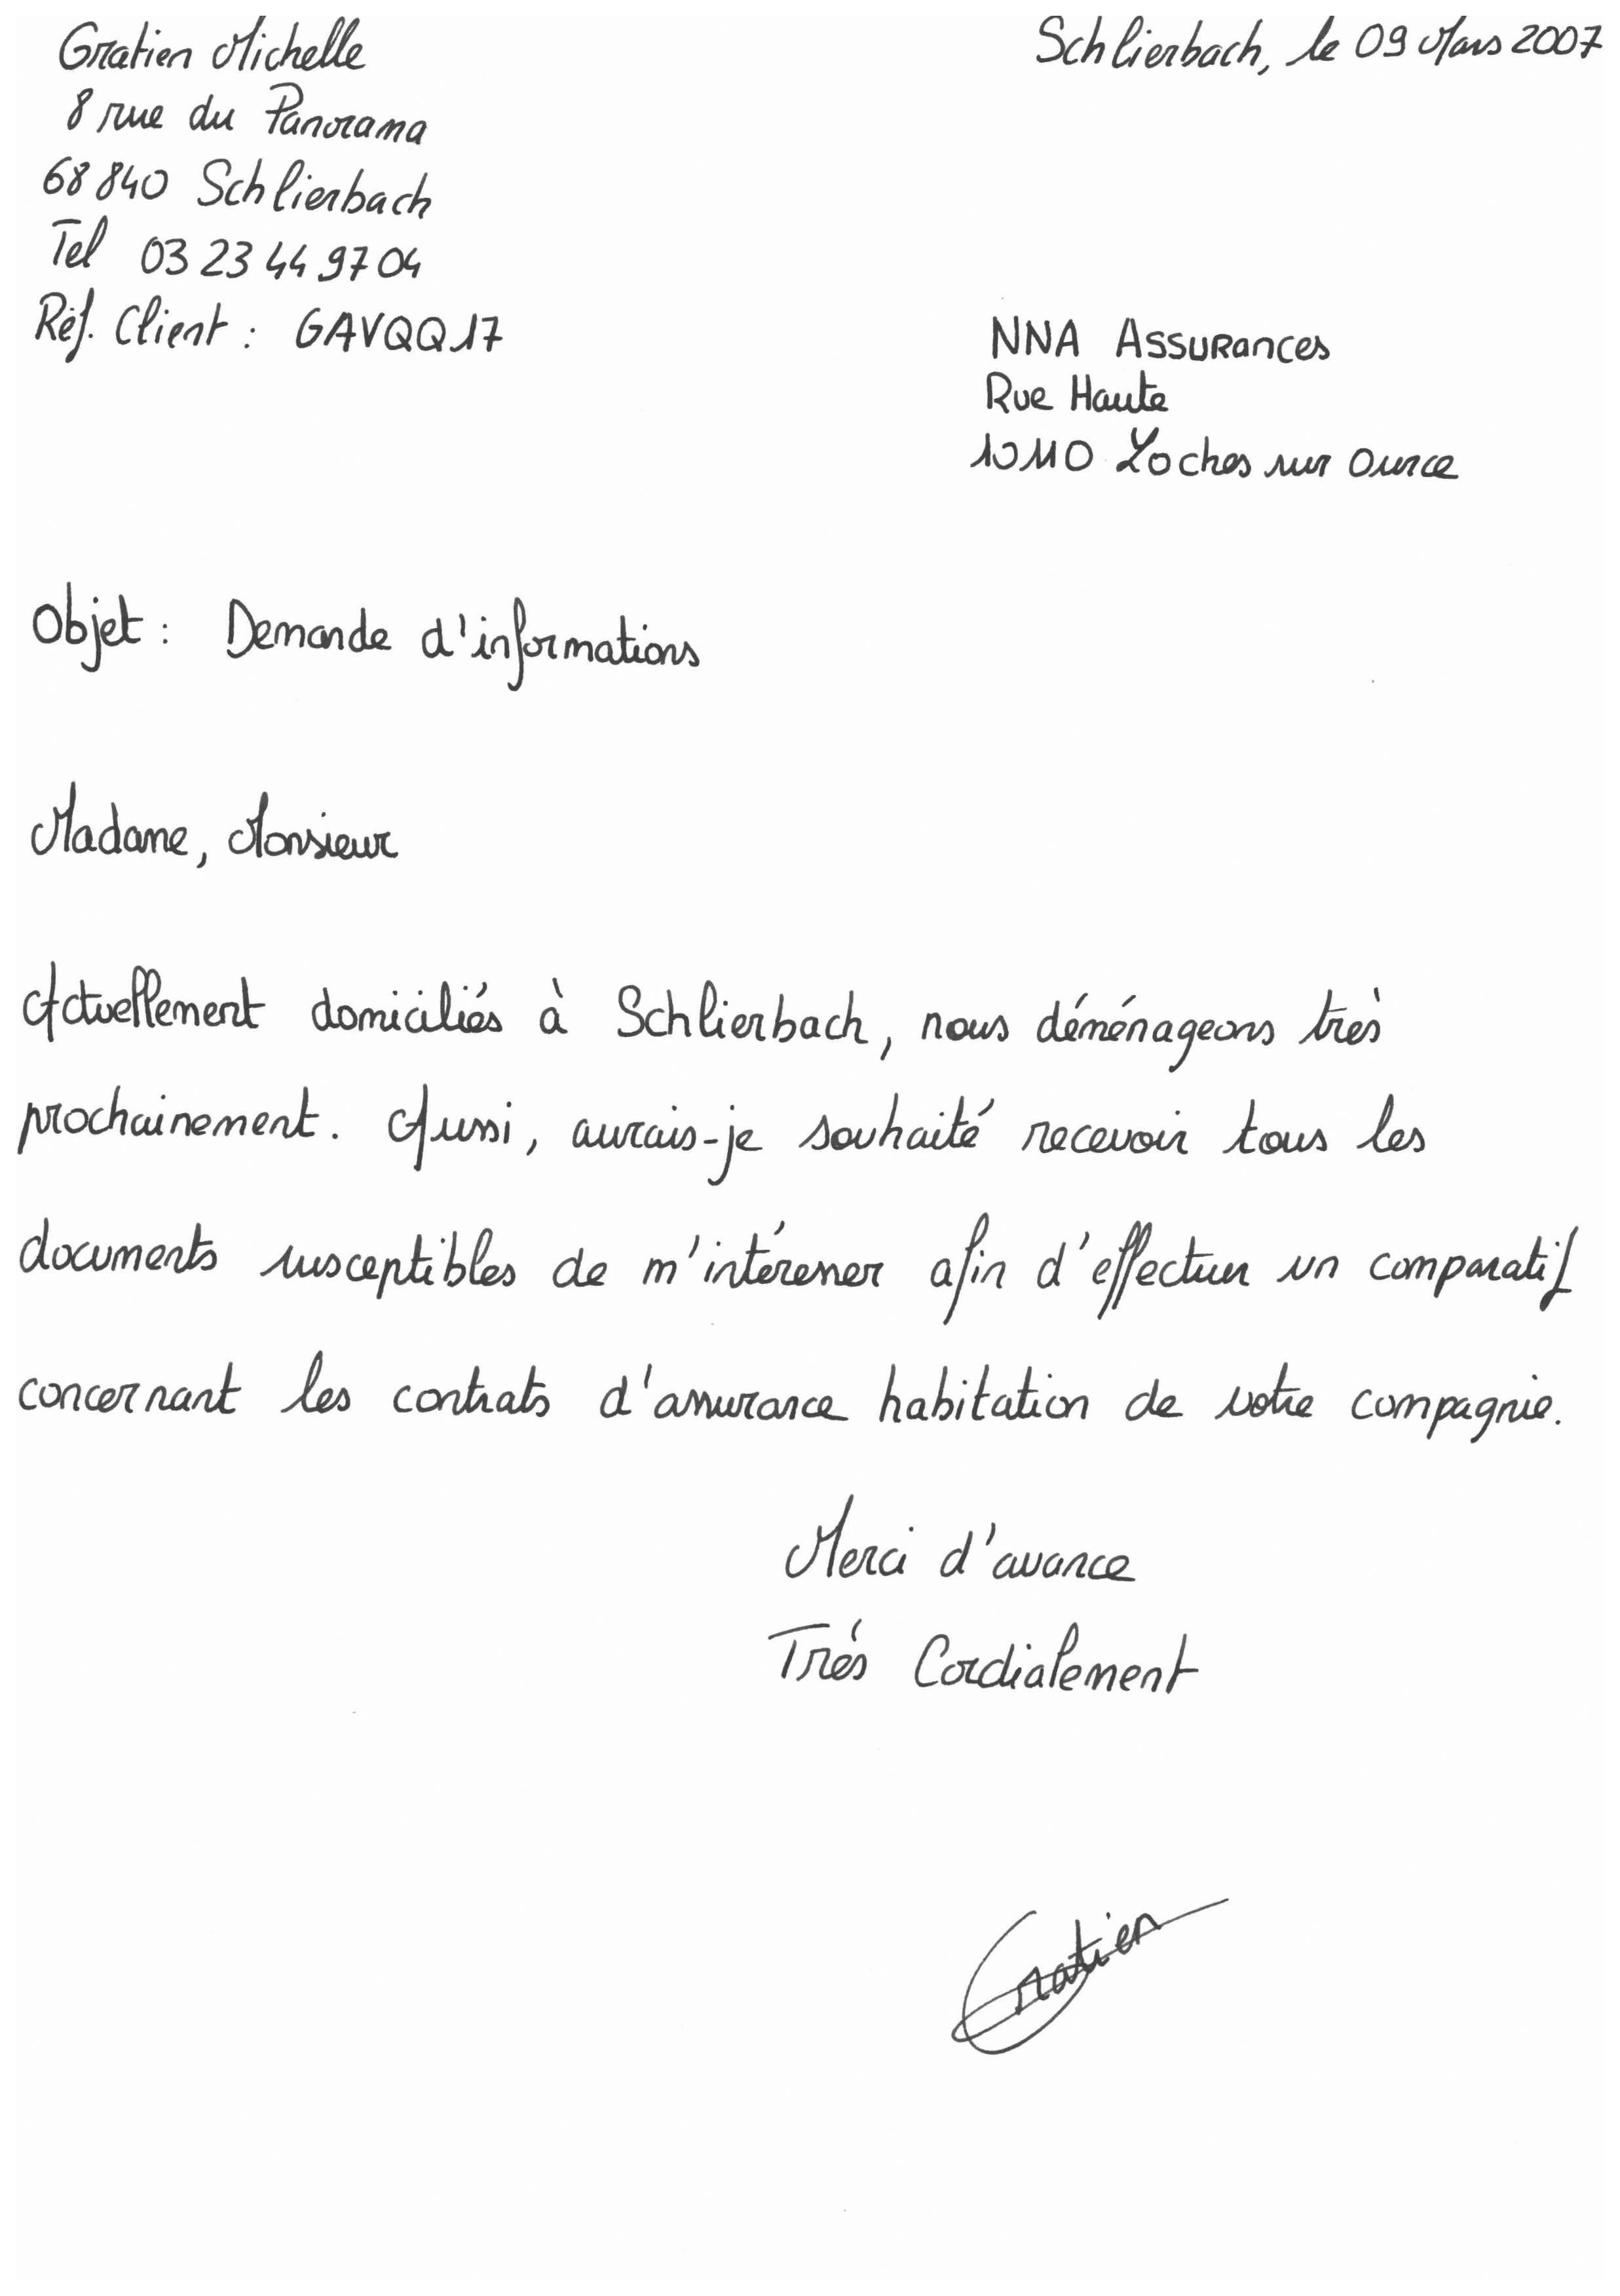 Gratien Michelle
Schlierbach, le 09 Mars 2007
8 rue du Panorama
68 840 Schlierbach
Tel 03 23 44 97 04
Réf. Client : GAVQQ17
NNA Assurances
Rue Haute
10110 Loches sur Ource
Objet : Demande d'informations
Madame, Monsieur
Actuellement domiciliés à Schlierbach, nous déménageons très
prochainement. Aussi, aurais-je souhaité recevoir tous les
documents susceptibles de m'intéresser afin d'effectuer un comparatif
concernant les contrats d'assurance habitation de votre compagnie.
Merci d'avance
Très Cordialement
Gratien